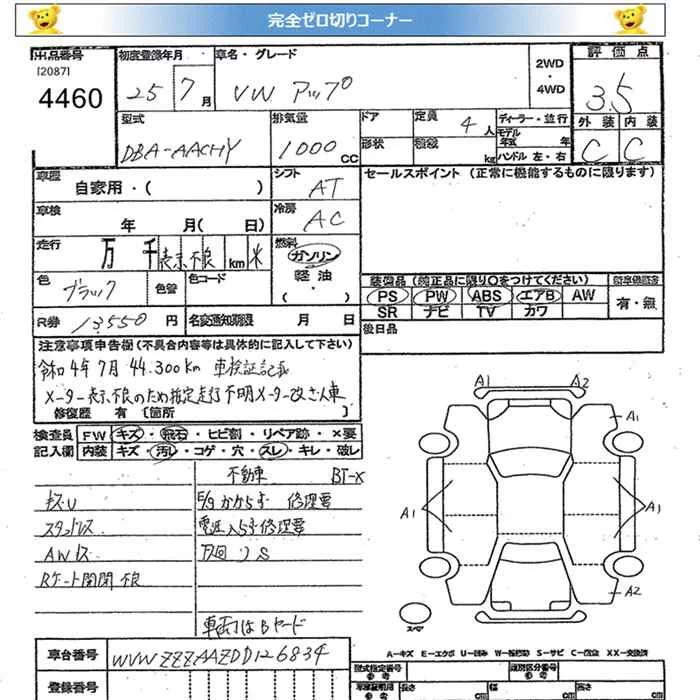 完全ゼロ切りコーナー
出品番号 初度登録年月 車名・グレード 2WD ・ 4WD 評価点
[2087]
4460 25 7月 VW アップ 3.5
型式 排気量 ドア 定員 4人 ディーラー・並行 外装 内装
DBA-AACHY 1000cc 形状 積載 kg モデル年式 年 C C
ハンドル 左・右
車歴 自家用・( ) シフト AT セールスポイント (正常に機能するものに限ります)
車検 年 月( 日) 冷房 AC
走行 万 千 表示不良 km 燃料 ガソリン
軽油
( ・ )
色 ブラック 色替 色コード 装備品 (純正品に限り○をつけてください)
PS PW ABS エアB AW 有・無
SR ナビ TV カワ
R券 13,550円 名変通知期限 月 日 後日品
注意事項申告欄 (不具合内容等は具体的に記入して下さい)
令和4年7月 44,300km 車検証記載
メーター表示不良のため指定走行不明メーター改ざん車
修復歴 有 〔箇所 〕
検査員 FW キズ・飛石・ヒビ割・リペア跡・×要
記入欄 内装 キズ・汚レ・コゲ・穴・スレ・キレ・破レ
不動車 BT-X
キズU E/gかからず 修理要
スタットレス 電圧入らず修理要
AWキズ 下回りS
Rゲート開閉 不良
車両はBヤード
A1 A2
A1
A1 A1
A2
スペア
A=キズ E=エクボ U=凹み W=補修跡 S=サビ C=腐食 XX=交換済
車台番号 WVWZZZAAZDD126834
登録番号 型式指定番号 参考 類別区分番号 参考
長さ cm 幅 cm 高さ cm